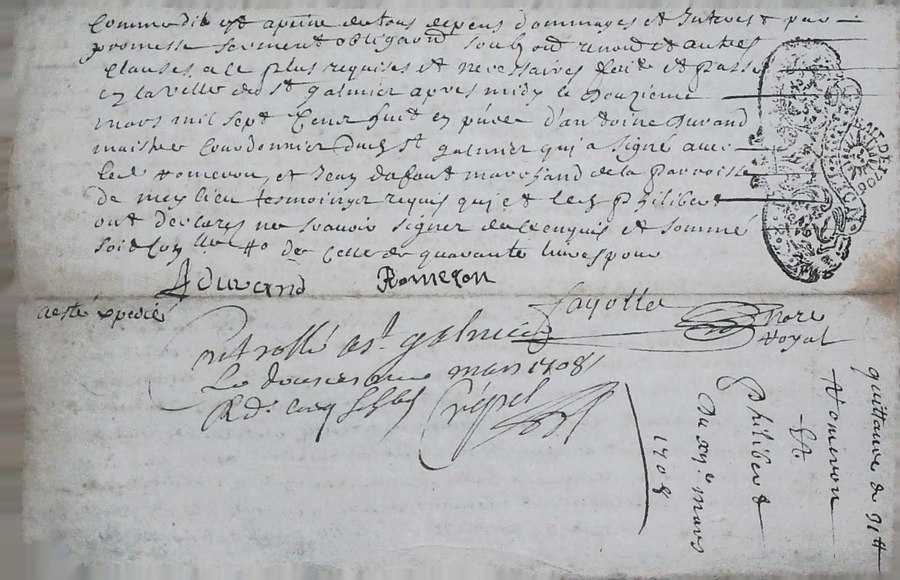 commodie et a peine de tous depens dommages et Interest par
promesse serment obligaōn soubzōn renōn et autres
clauses a ce plus requises et necessaires fait et Passé
en la ville de St galmier apres midy le douzieme
mars mil sept Cent huit en pñce d'antoine Durand
maistre Courdonnier dud St galmier qui a signé avec
led Romeron, et Jean Dafaut marchand de la Parroisse
de meylieu tesmoingz requis qui et led Philibert
ont declarés ne scavoir signer de ce enquis et sommé
soit
de celle de quarante livres pour
Adurand Romeron
Jayolle Nore Royal
a esté expedié
Controllé a St galmier
Le douziesme mars 1708
Rd cinq sols Crespel
quittance de 91tt
Romeron
Et
Philibert
Du xij.e mars
1708
GÑALITE DE LION